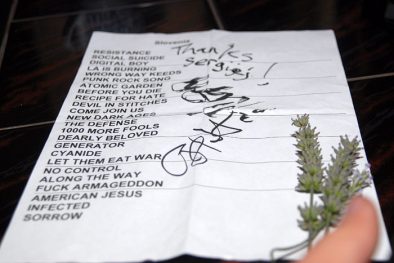 Slovenia
Thanks
Sergiej!
RESISTANCE
SOCIAL SUICIDE
DIGITAL BOY
LA IS BURNING
WRONG WAY KEEDS
PUNK ROCK SONG
ATOMIC GARDEN
BEFORE YOU DIE
RECIPE FOR HATE
DEVIL IN STITCHES
COME JOIN US
NEW DARK AGES
THE DEFENSE
1000 MORE FOOLS
DEARLY BELOVED
GENERATOR
CYANIDE
LET THEM EAT WAR
NO CONTROL
ALONG THE WAY
FUCK ARMAGEDDON
AMERICAN JESUS
INFECTED
SORROW